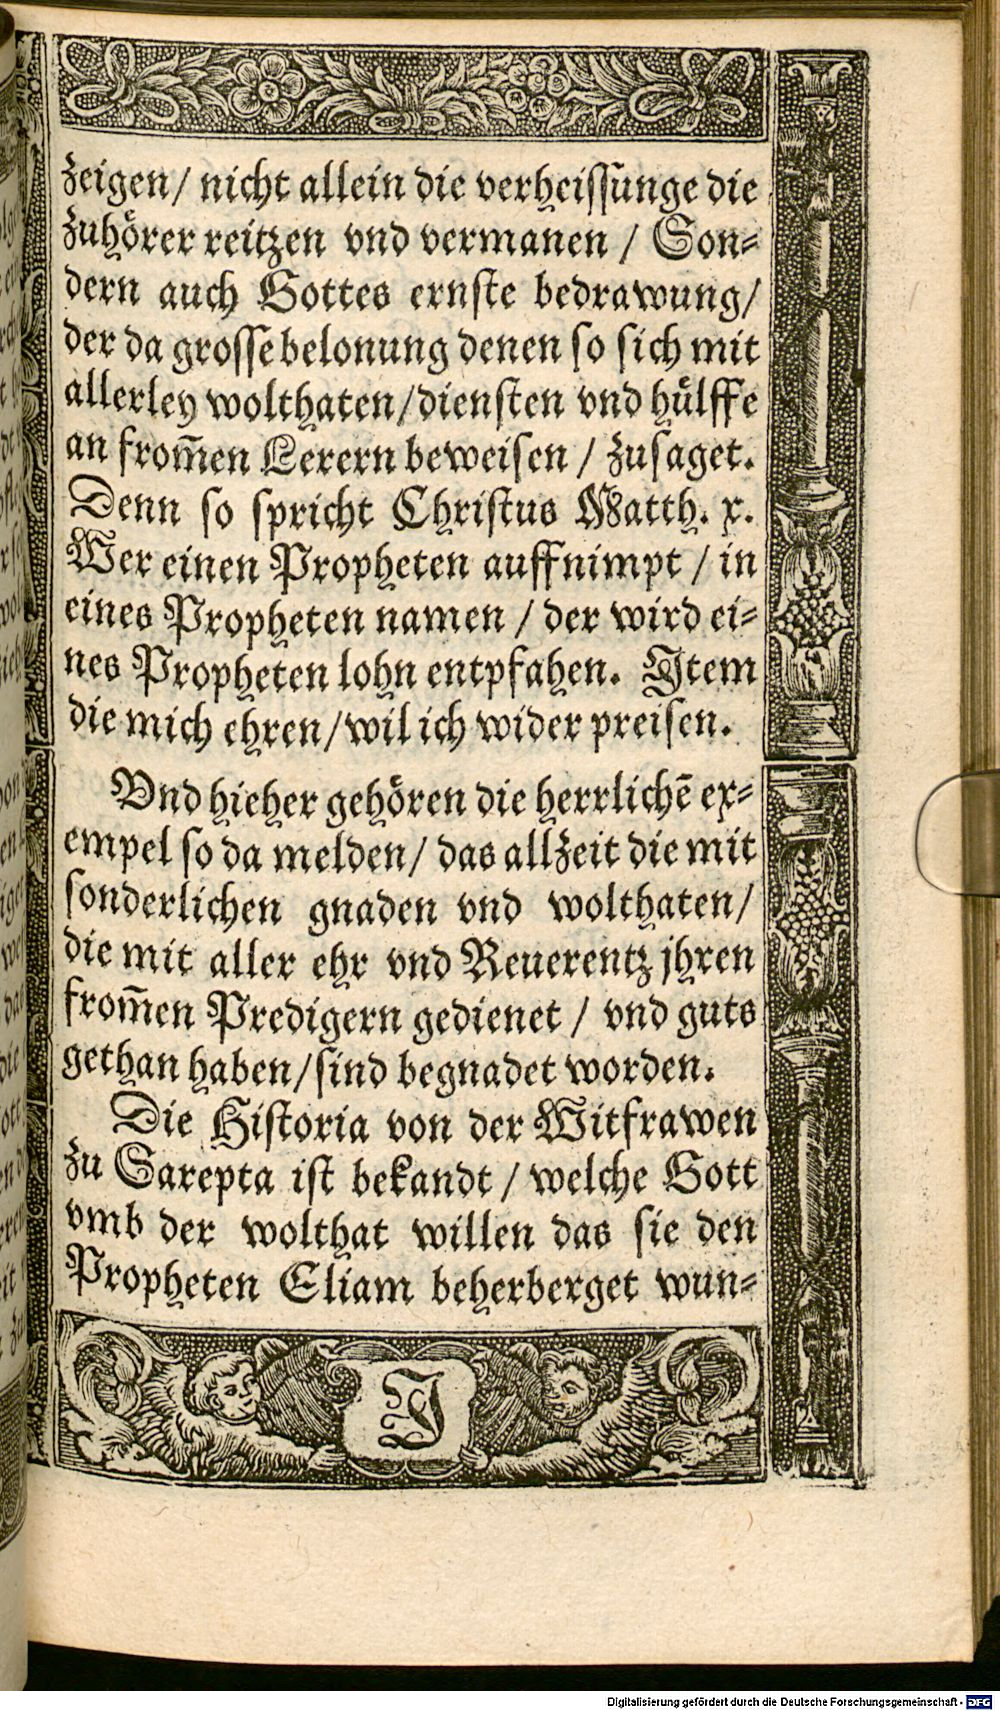 zeigen/ nicht allein die verheissunge die
zuhörer reitzen vnd vermanen / Son⸗
dern auch Gottes ernste bedrawung/
der da grosse belonung denen so sich mit
allerley wolthaten/diensten vnd hülffe
an from̃en Lerern beweisen / zusaget.
Denn so spricht Christus Matth. x.
Wer einen Propheten auffnimpt / in
eines Propheten namen / der wird ei⸗
nes Propheten lohn entpfahen. Item
die mich ehren/wil ich wider preisen.
Vnd hieher gehören die herrlichẽ ex⸗
empel so da melden/ das allzeit die mit
sonderlichen gnaden vnd wolthaten/
die mit aller ehr vnd Reuerentz jhren
from̃en Predigern gedienet / vnd guts
gethan haben/sind begnadet worden.
Die Historia von der Witfrawen
zu Sarepta ist bekandt / welche Gott
vmb der wolthat willen das sie den
Propheten Eliam beherberget wun⸗
J
Digitalisierung gefördert durch die Deutsche Forschungsgemeinschaft - DFG